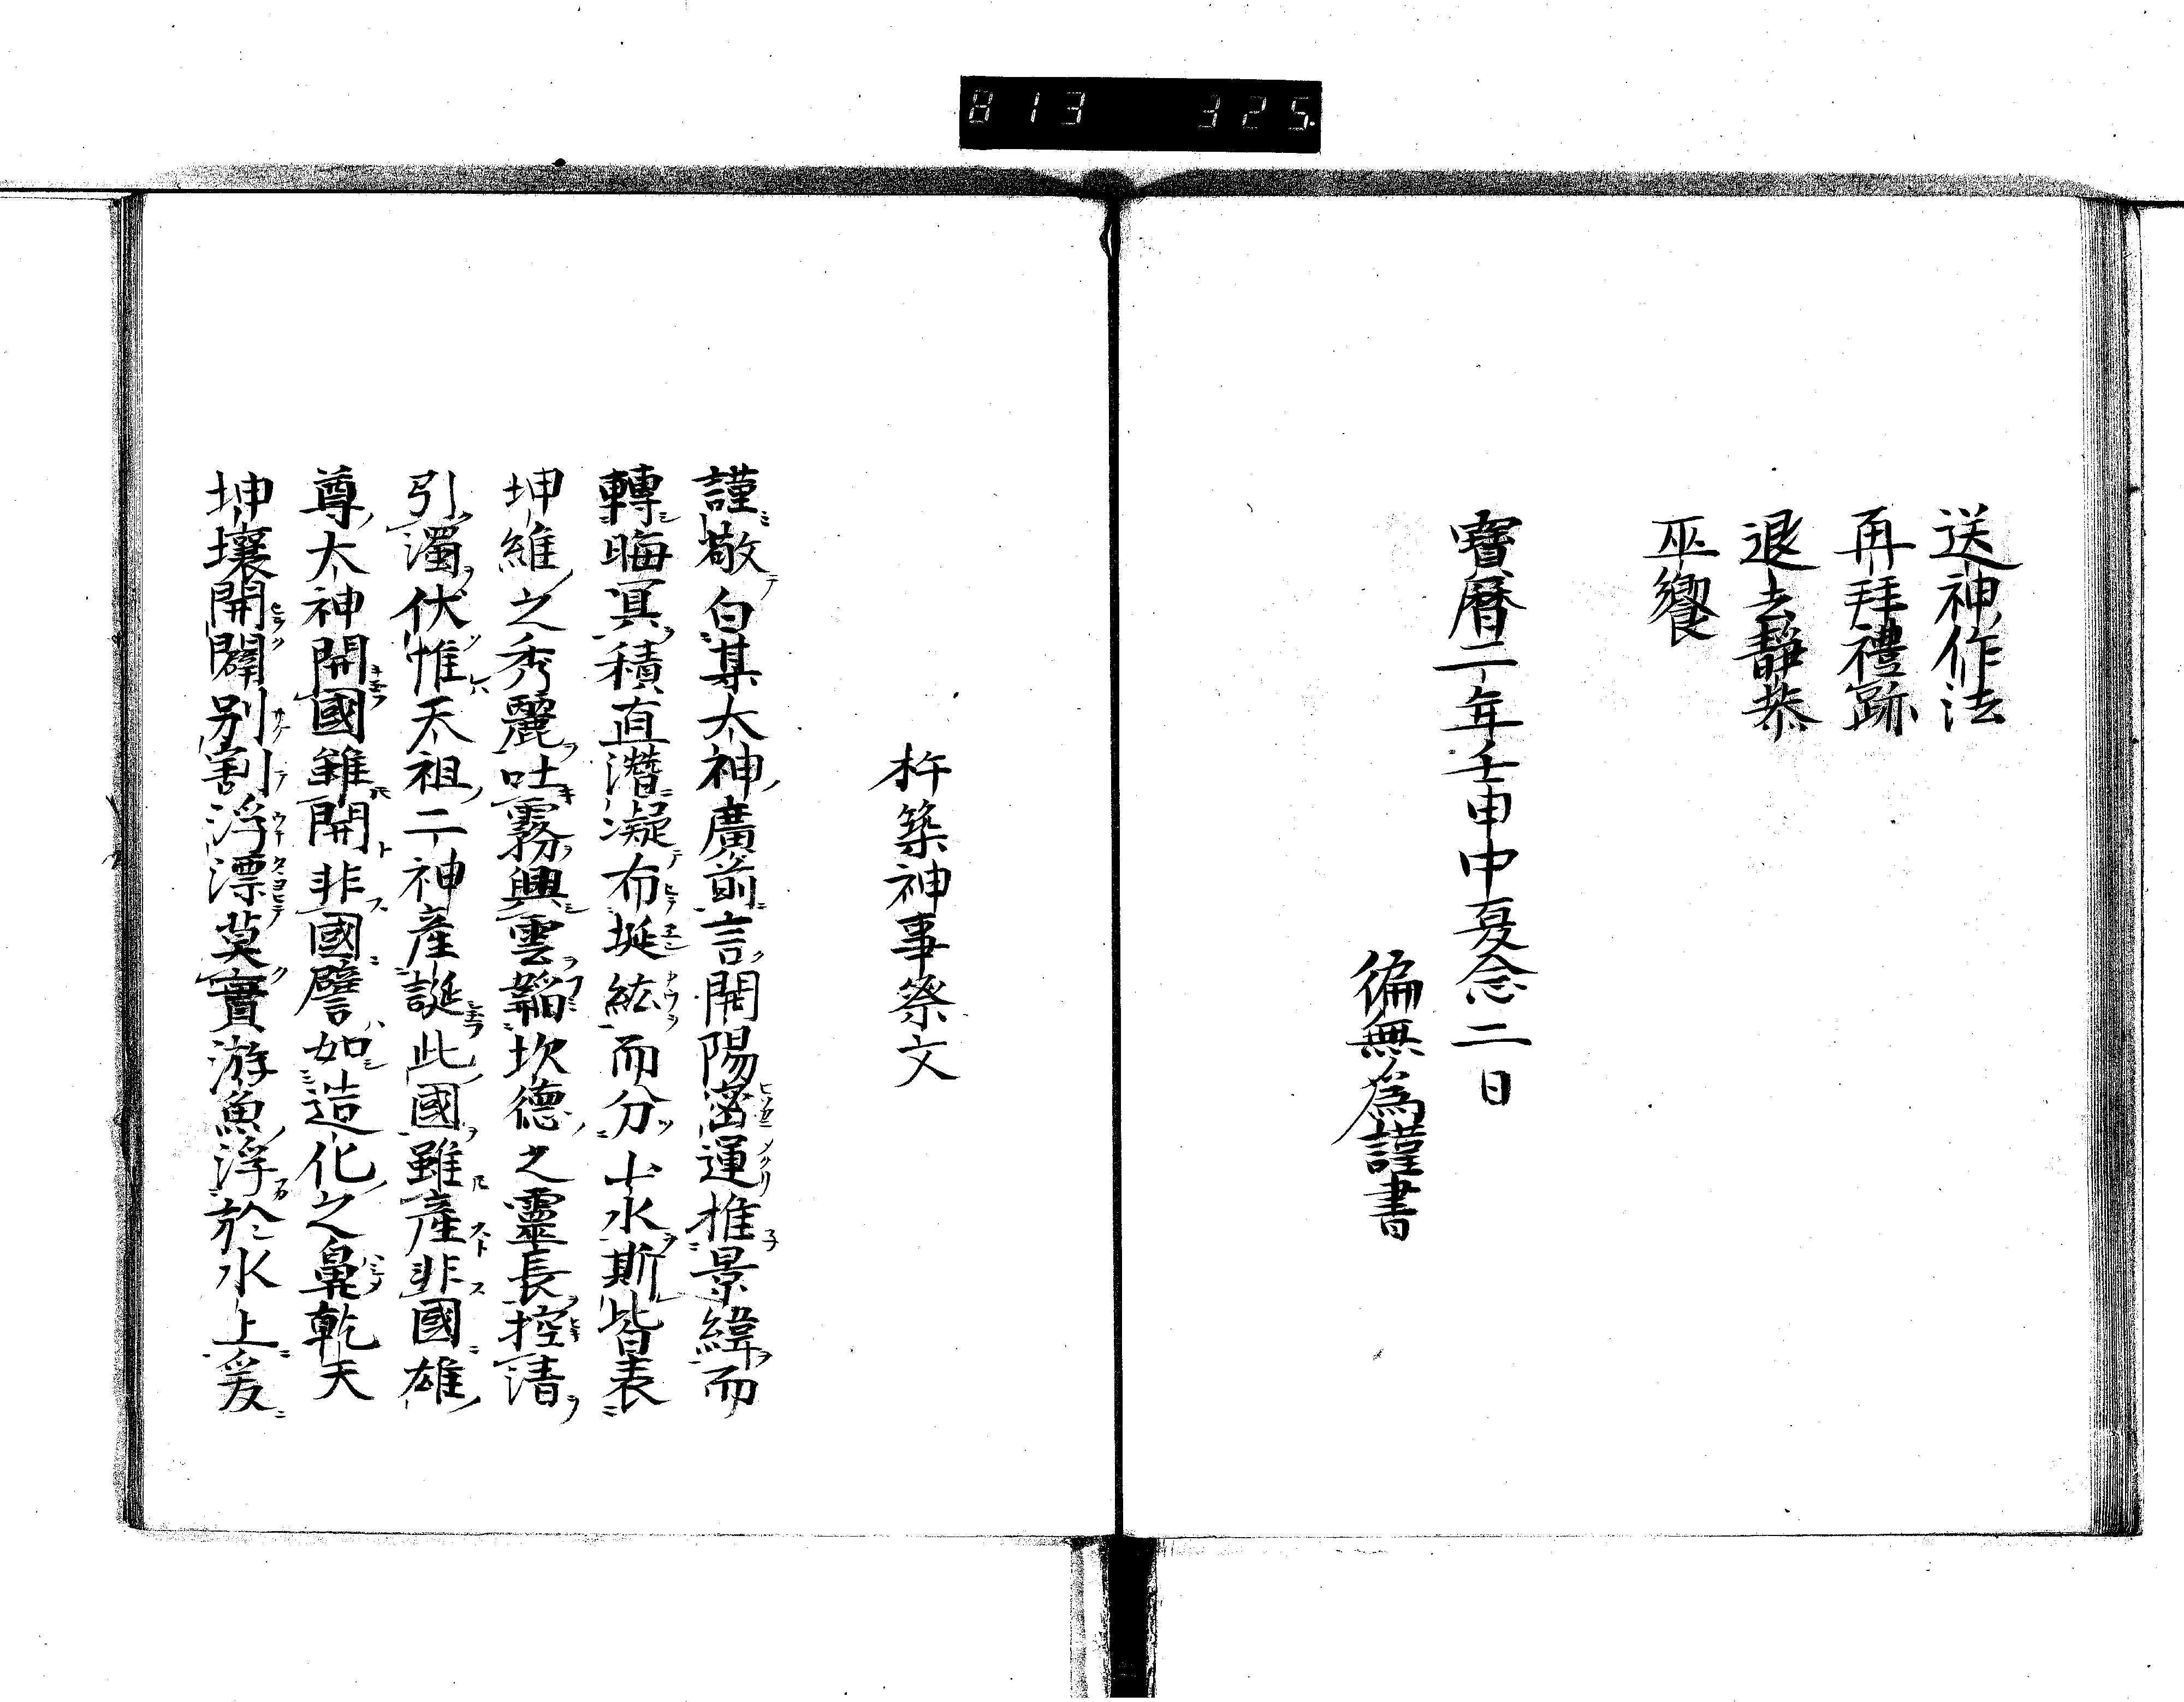 813 325
送神作法
再拜禮跡
退去靜恭
巫饗
寶曆二年壬申中夏念二日
徧無為謹書
杵築神事祭文
謹敬白某太神廣前言開陽密運推景緯而
轉晦冥積直潛凝布埏紘而分山水斯皆表
坤維之秀麗吐霧興雲韜坎德之靈長控清
引濁伏惟天祖二神產誕此國雖產非國雄
尊太神開國雖開非國譬如造化之鼻乾天
坤壤開闢別割浮漂莫實游魚浮於水上爰